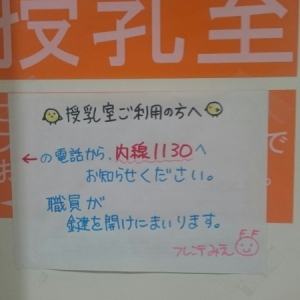 授乳室
授乳室ご利用の方へ
←の電話から、内線1130へ
お知らせください。
職員が
鍵を開けにまいります。
フレンテみえ